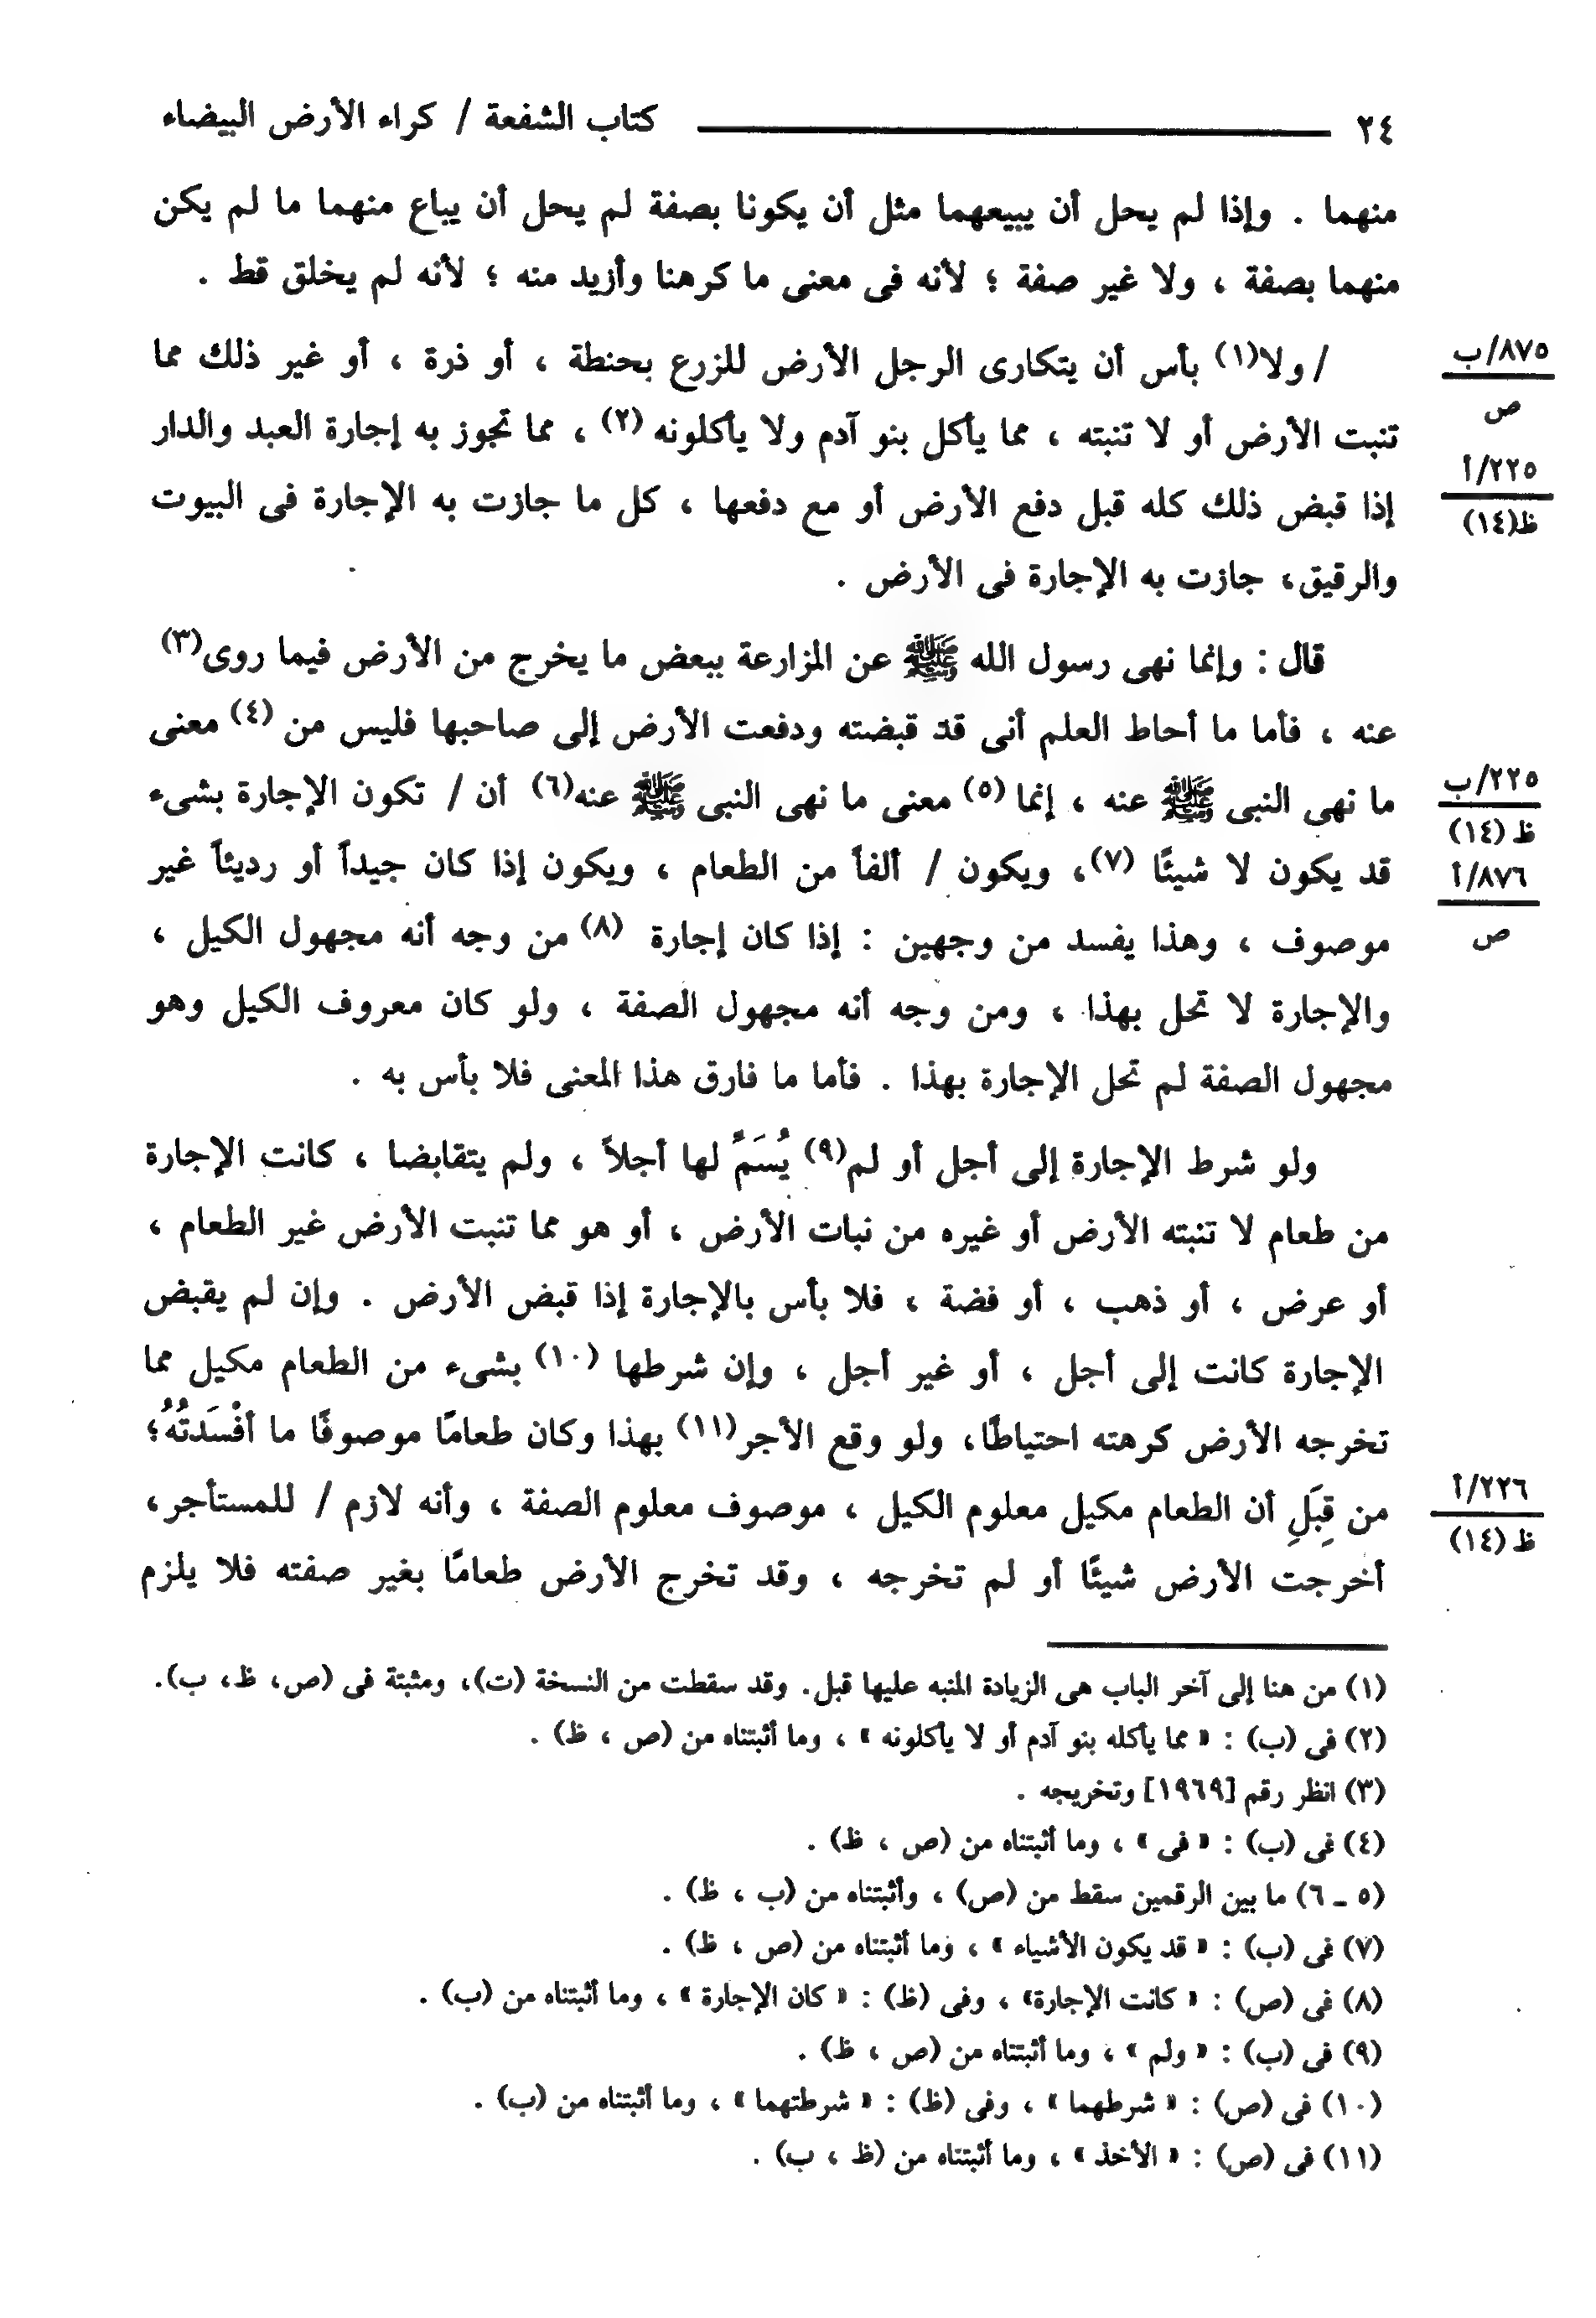 ٢٤ كتاب الشفعة / كراء الأرض البيضاء
منهما . وإذا لم يحل أن يبيعهما مثل أن يكونا بصفة لم يحل أن يباع منهما ما لم يكن
منهما بصفة ، ولا غير صفة ؛ لأنه فى معنى ما كرهنا وأزيد منه ؛ لأنه لم يخلق قط .
/ ولا(١) بأس أن يتكارى الرجل الأرض للزرع بحنطة ، أو ذرة ، أو غير ذلك مما
٨٧٥/ب
ص
تنبت الأرض أو لا تنبته ، مما يأكل بنو آدم ولا يأكلونه (٢) ، مما تجوز به إجارة العبد والدار
٢٢٥/أ
ظ(١٤)
إذا قبض ذلك كله قبل دفع الأرض أو مع دفعها ، كل ما جازت به الإجارة فى البيوت
والرقيق، جازت به الإجارة فى الأرض .
قال : وإنما نهى رسول الله ﷺ عن المزارعة ببعض ما يخرج من الأرض فيما روى(٣)
عنه ، فأما ما أحاط العلم أنى قد قبضته ودفعت الأرض إلى صاحبها فليس من (٤) معنى
ما نهى النبى ﷺ عنه ، إنما (٥) معنى ما نهى النبى ﷺ عنه(٦) أن / تكون الإجارة بشىء
٢٢٥/ب
ظ (١٤)
قد يكون لا شيئًا (٧)، ويكون / ألفاً من الطعام ، ويكون إذا كان جيداً أو رديئاً غير
٨٧٦/أ
ص
موصوف ، وهذا يفسد من وجهين : إذا كان إجارة (٨) من وجه أنه مجهول الكيل ،
والإجارة لا تحل بهذا ، ومن وجه أنه مجهول الصفة ، ولو كان معروف الكيل وهو
مجهول الصفة لم تحل الإجارة بهذا . فأما ما فارق هذا المعنى فلا بأس به .
ولو شرط الإجارة إلى أجل أو لم(٩) يُسَمِّ لها أجلاً ، ولم يتقابضا ، كانت الإجارة
من طعام لا تنبته الأرض أو غيره من نبات الأرض ، أو هو مما تنبت الأرض غير الطعام ،
أو عرض ، أو ذهب ، أو فضة ، فلا بأس بالإجارة إذا قبض الأرض . وإن لم يقبض
الإجارة كانت إلى أجل ، أو غير أجل ، وإن شرطها (١٠) بشىء من الطعام مكيل مما
تخرجه الأرض كرهته احتياطًا، ولو وقع الأجر(١١) بهذا وكان طعامًا موصوفًا ما أفْسَدتُهُ؛
من قِبَلِ أن الطعام مكيل معلوم الكيل ، موصوف معلوم الصفة ، وأنه لازم / للمستأجر،
٢٢٦/أ
ظ (١٤)
أخرجت الأرض شيئًا أو لم تخرجه ، وقد تخرج الأرض طعامًا بغير صفته فلا يلزم
(١) من هنا إلى آخر الباب هى الزيادة المنبه عليها قبل. وقد سقطت من النسخة (ت)، ومثبتة فى (ص، ظ، ب).
(٢) فى (ب) : « مما يأكله بنو آدم أو لا يأكلونه » ، وما أثبتناه من (ص ، ظ) .
(٣) انظر رقم [١٩٦٩] وتخريجه .
(٤) فى (ب) : « فى » ، وما أثبتناه من (ص ، ظ) .
(٥ ـ ٦) ما بين الرقمين سقط من (ص) ، وأثبتناه من (ب ، ظ) .
(٧) فى (ب) : « قد يكون الأشياء » ، وما أثبتناه من (ص ، ظ) .
(٨) فى (ص) : « كانت الإجارة» ، وفى (ظ) : « كان الإجارة » ، وما أثبتناه من (ب) .
(٩) فى (ب) : « ولم » ، وما أثبتناه من (ص ، ظ) .
(١٠) فى (ص) : « شرطهما » ، وفى (ظ) : « شرطتهما » ، وما أثبتناه من (ب) .
(١١) فى (ص) : « الأخذ » ، وما أثبتناه من (ظ ، ب) .